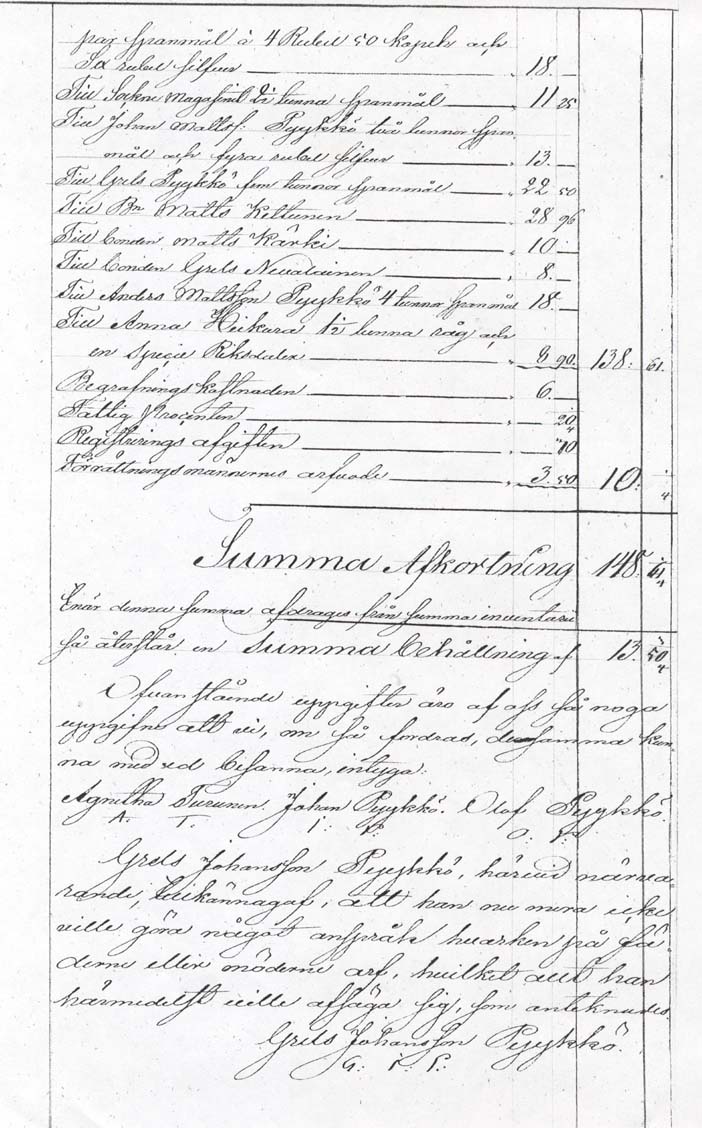 par spanmål à 4 Rubel 50 kopek och
Sex rubel silfver — " 18. —
Till Sockne Magasinet 2½ tunna spanmål — " 11 25
Till Johan Mattsf: Pyykkö två tunnor span-
mål och fyra rubel silfver — " 13. —
Till Grels Pyykkö fem tunnor spanmål — " 22 50
Till Bn Matts Keltunen — " 28 96
Till Bonden Matts Kärki — " 10 —
Till Bonden Grels Nevalainen — " 8. —
Till Anders Mattsson Pyykkö 4 tunnor spanmål 18. —
Till Anna Heikura 1½ tunna råg och
en Specie Riksdaler — " 8 90. 138. 61.
Begrafnings kostnaden — " 6. —
Fattig Procenten — " — 20
Registrerings afgiften — " — 40
Förrättningsmännernes arfvode — " 3. 50 10. 4
Summa Afkortning 148. 61 4
Enär denna summa afdrages från summa inventarii
så återstår en Summa behållning af 13. 50 4
Ofvanstående uppgifter äro af oss så noga
uppgifne att vi, om så fordras, desamma kun-
na med ed besanna, intyga:
Agnetha Turunen. Johan Pyykkö. Olof Pyykkö.
A. T. I. P. O. P.
Grels Johansson Pyykkö, härvid närva-
rande, tillkännagaf, att han nu mera icke
ville göra något anspråk hvarken på fä-
derne eller möderne arf, hvilket allt han
härmedelst ville afsäga sig, som antecknades
Grels Johansson Pyykkö.
G. I. P.